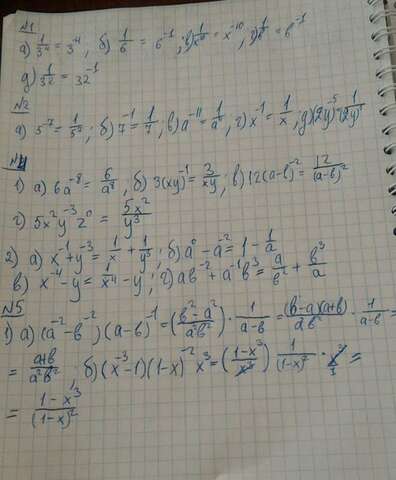 №1
а) 1/3⁴ = 3⁻⁴, б) 1/6 = 6⁻¹, в) 1/x¹⁰ = x⁻¹⁰, г) 1/в = в⁻¹
д) 1/32 = 32⁻¹
№2
а) 5⁻⁷ = 1/5⁷; б) 7⁻¹ = 1/7; в) a⁻¹¹ = 1/a¹¹; г) x⁻¹ = 1/x, д) (2y)⁻⁵ = 1/(2y)⁵
№4
1) а) 6a⁻⁸ = 6/a⁸, б) 3(xy)⁻¹ = 3/xy, в) 12(a-b)⁻² = 12/(a-b)²
г) 5x²y⁻³z⁰ = 5x²/y³
2) а) x⁻¹+y⁻³ = 1/x + 1/y³; б) a⁰-a⁻² = 1 - 1/a
в) x⁻⁴-y = 1/x⁴ - y; г) ab⁻²+a⁻¹b³ = a/b² + b³/a
№5
1) а) (a⁻²-b⁻²)(a-b)⁻¹ = (b²-a²/a²b²) · 1/a-b = (b-a)(a+b)/a²b² · 1/a-b =
= a+b/a²b², б) (x⁻³-1)(1-x)⁻²x³ = (1-x³/x³) 1/(1-x)² · x³/1 =
= 1-x³/(1-x)²